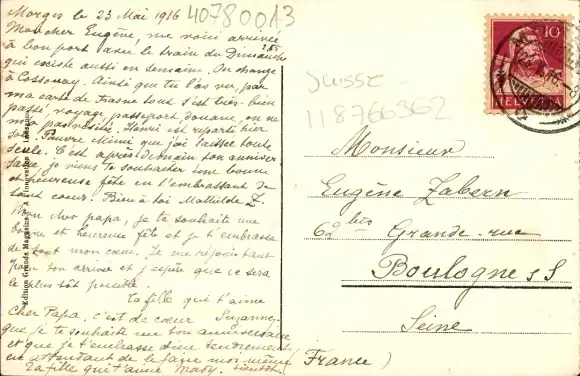 Morges le 23 Mai 1916
40780013
Mon cher Eugène, me voici arrivée
à bon port avec le train du Dimanche
qui existe aussi en semaine. On change
à Cossonay. Ainsi que tu l'as vu, par
ma carte de Frasne tout s'est très bien
passé, voyage, passeport, douane, on ne
m'a pas visité. Henri est reparti hier
soir. Pauvre Mimi que j'ai laissée toute
seule. C'est après demain ton anniver
saire je viens te souhaiter une bonne
et heureuse fête en t'embrassant de
tout cœur. Bien à toi Mathilde Z
Mon cher papa, je te souhaite une
bonne et heureuse fête et je t'embrasse
de tout mon cœur. Je me réjouis tant
que ton arrive et j'espère que ce sera
le plus tôt possible.
Ta fille qui t'aime
Suzanne
Cher Papa, c'est de cœur
que je te souhaite un bon anniversaire
et que je t'embrasse bien tendrement
en attendant de le faire moi-même
Ta fille qui t'aime bientôt.
Edition Grands Magasins " A l'Innovation " Lausanne
10
HELVETIA
SUISSE
118766362
Monsieur
Eugène Zabern
62 bis Grande-rue
Boulogne s/S
Seine
(France)